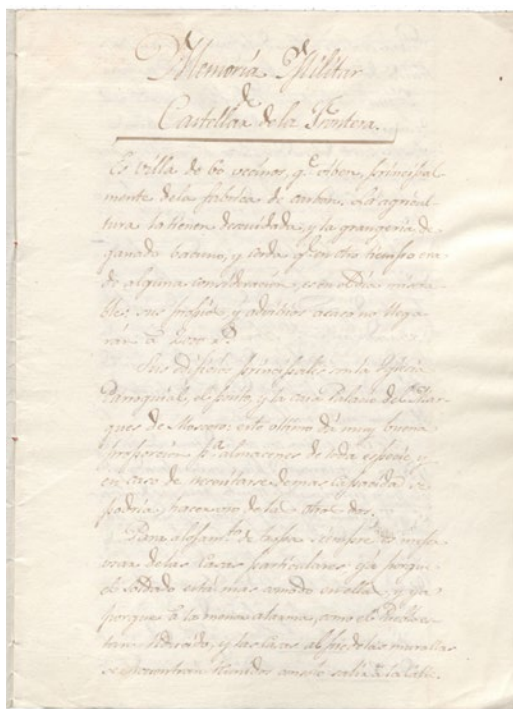 Memoria Militar
de
Castellar de la Frontera.
Es villa de 60 vecinos, q.e viben principal
mente de la fabrica de carbon. La agricul-
tura la tienen descuidada, y la grangeria de
ganado bacuno, y cerda q.e en otro tiempo era
de alguna consideracion, es en el dia misera
ble: sus propios y advitrios acaso no llega
ran a
Sus edificios principales son la Yglesia
Parroquial, el posito, y la casa Palacio del Mar
ques de Moscoso: este ultimo dá muy buena
proporcion p.a almacenes de toda especie, y
en caso de necesitarse demas capacidad se
podria hacer uso de los otros dos.
Para alojam.to de tropa siempre es
de las casas particulares; ya porque
el soldado está mas comodo en ella, y ya
porque a la menor alarma, como el Pueblo es
tan reducido, y las casas al pie de las murallas
se encontrarán reunidos con solo salir a la calle.